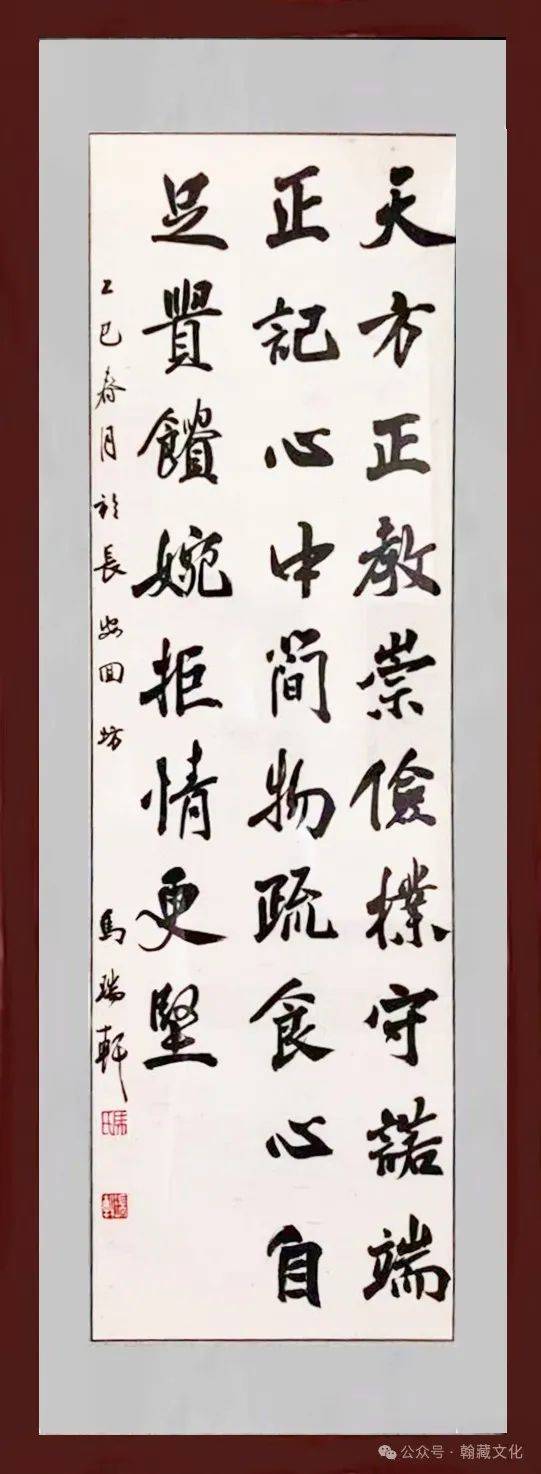 天方正教崇儉樸守諾端
正記心中簡物疏食心自
足貴饋婉拒情更堅
乙巳春月於長安回坊
馬瑞軒
公众号·翰藏文化